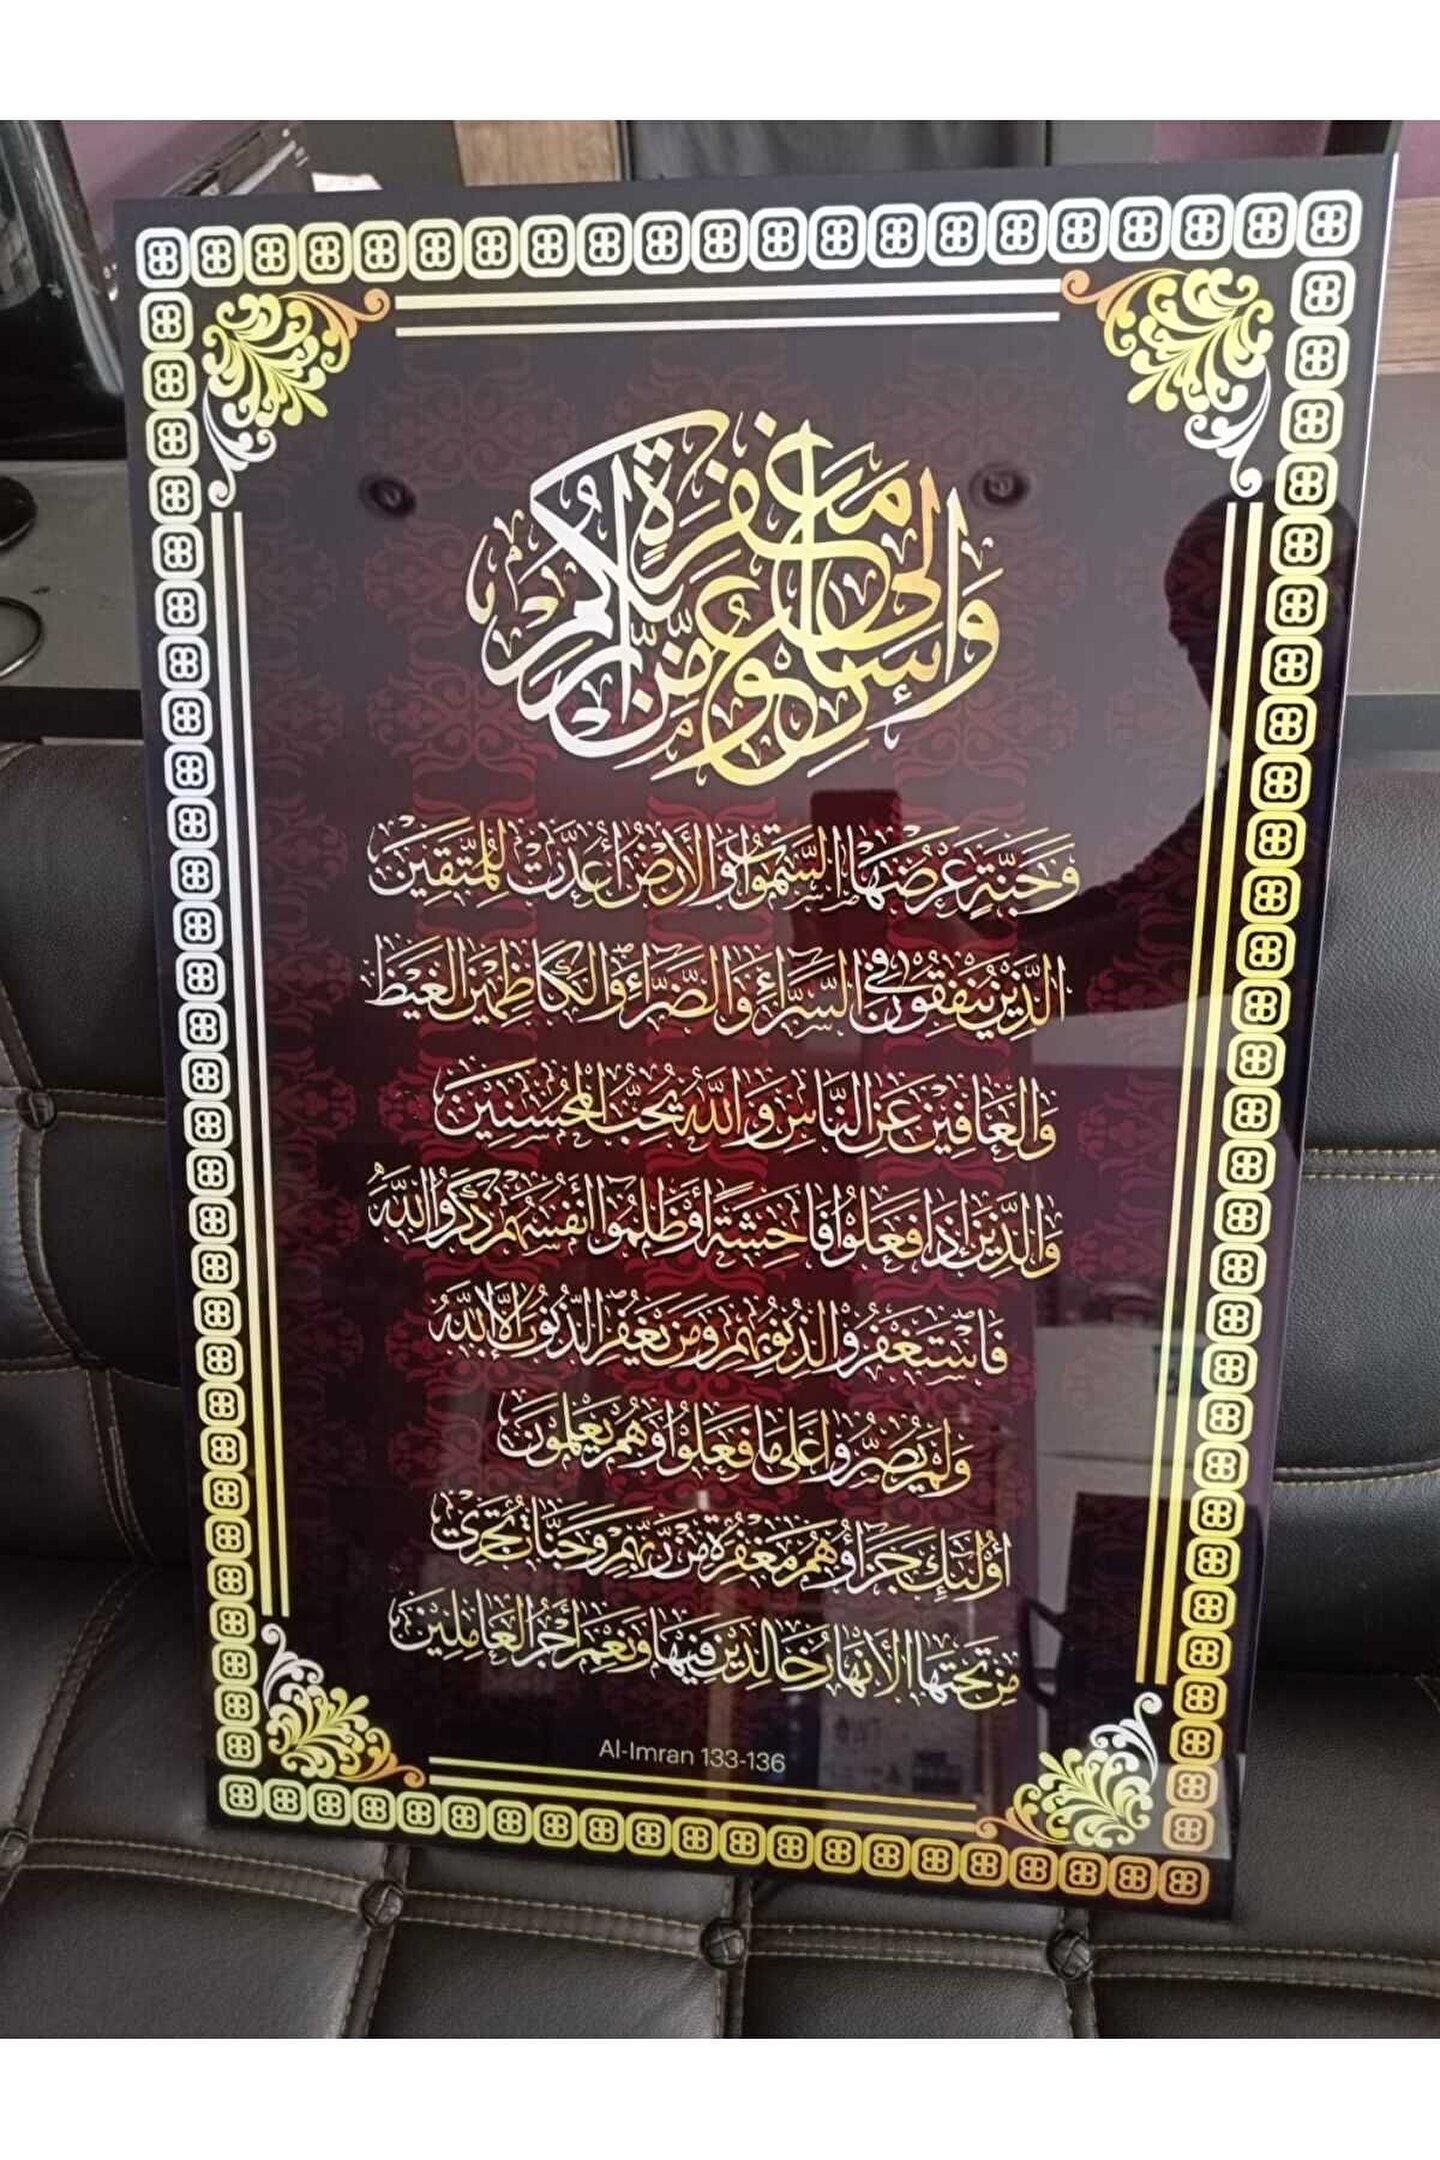 وَسَارِعُوا إِلَى مَغْفِرَةٍ مِّن رَّبِّكُمْ
وَجَنَّةٍ عَرْضُهَا السَّمٰوَاتُ وَالْأَرْضُ أُعِدَّتْ لِلْمُتَّقِينَ
الَّذِينَ يُنْفِقُونَ فِي السَّرَّاءِ وَالضَّرَّاءِ وَالْكَاظِمِينَ الْغَيْظَ
وَالْعَافِينَ عَنِ النَّاسِ وَاللّٰهُ يُحِبُّ الْمُحْسِنِينَ
وَالَّذِينَ إِذَا فَعَلُوا فَاحِشَةً أَوْ ظَلَمُوا أَنْفُسَهُمْ ذَكَرُوا اللّٰهَ
فَاسْتَغْفَرُوا لِذُنُوبِهِمْ وَمَنْ يَغْفِرُ الذُّنُوبَ إِلَّا اللّٰهُ
وَلَمْ يُصِرُّوا عَلَى مَا فَعَلُوا وَهُمْ يَعْلَمُونَ
أُولٰئِكَ جَزَاؤُهُمْ مَغْفِرَةٌ مِنْ رَبِّهِمْ وَجَنَّاتٌ تَجْرِي
مِنْ تَحْتِهَا الْأَنْهَارُ خَالِدِينَ فِيهَا وَنِعْمَ أَجْرُ الْعَامِلِينَ
Al-Imran 133-136